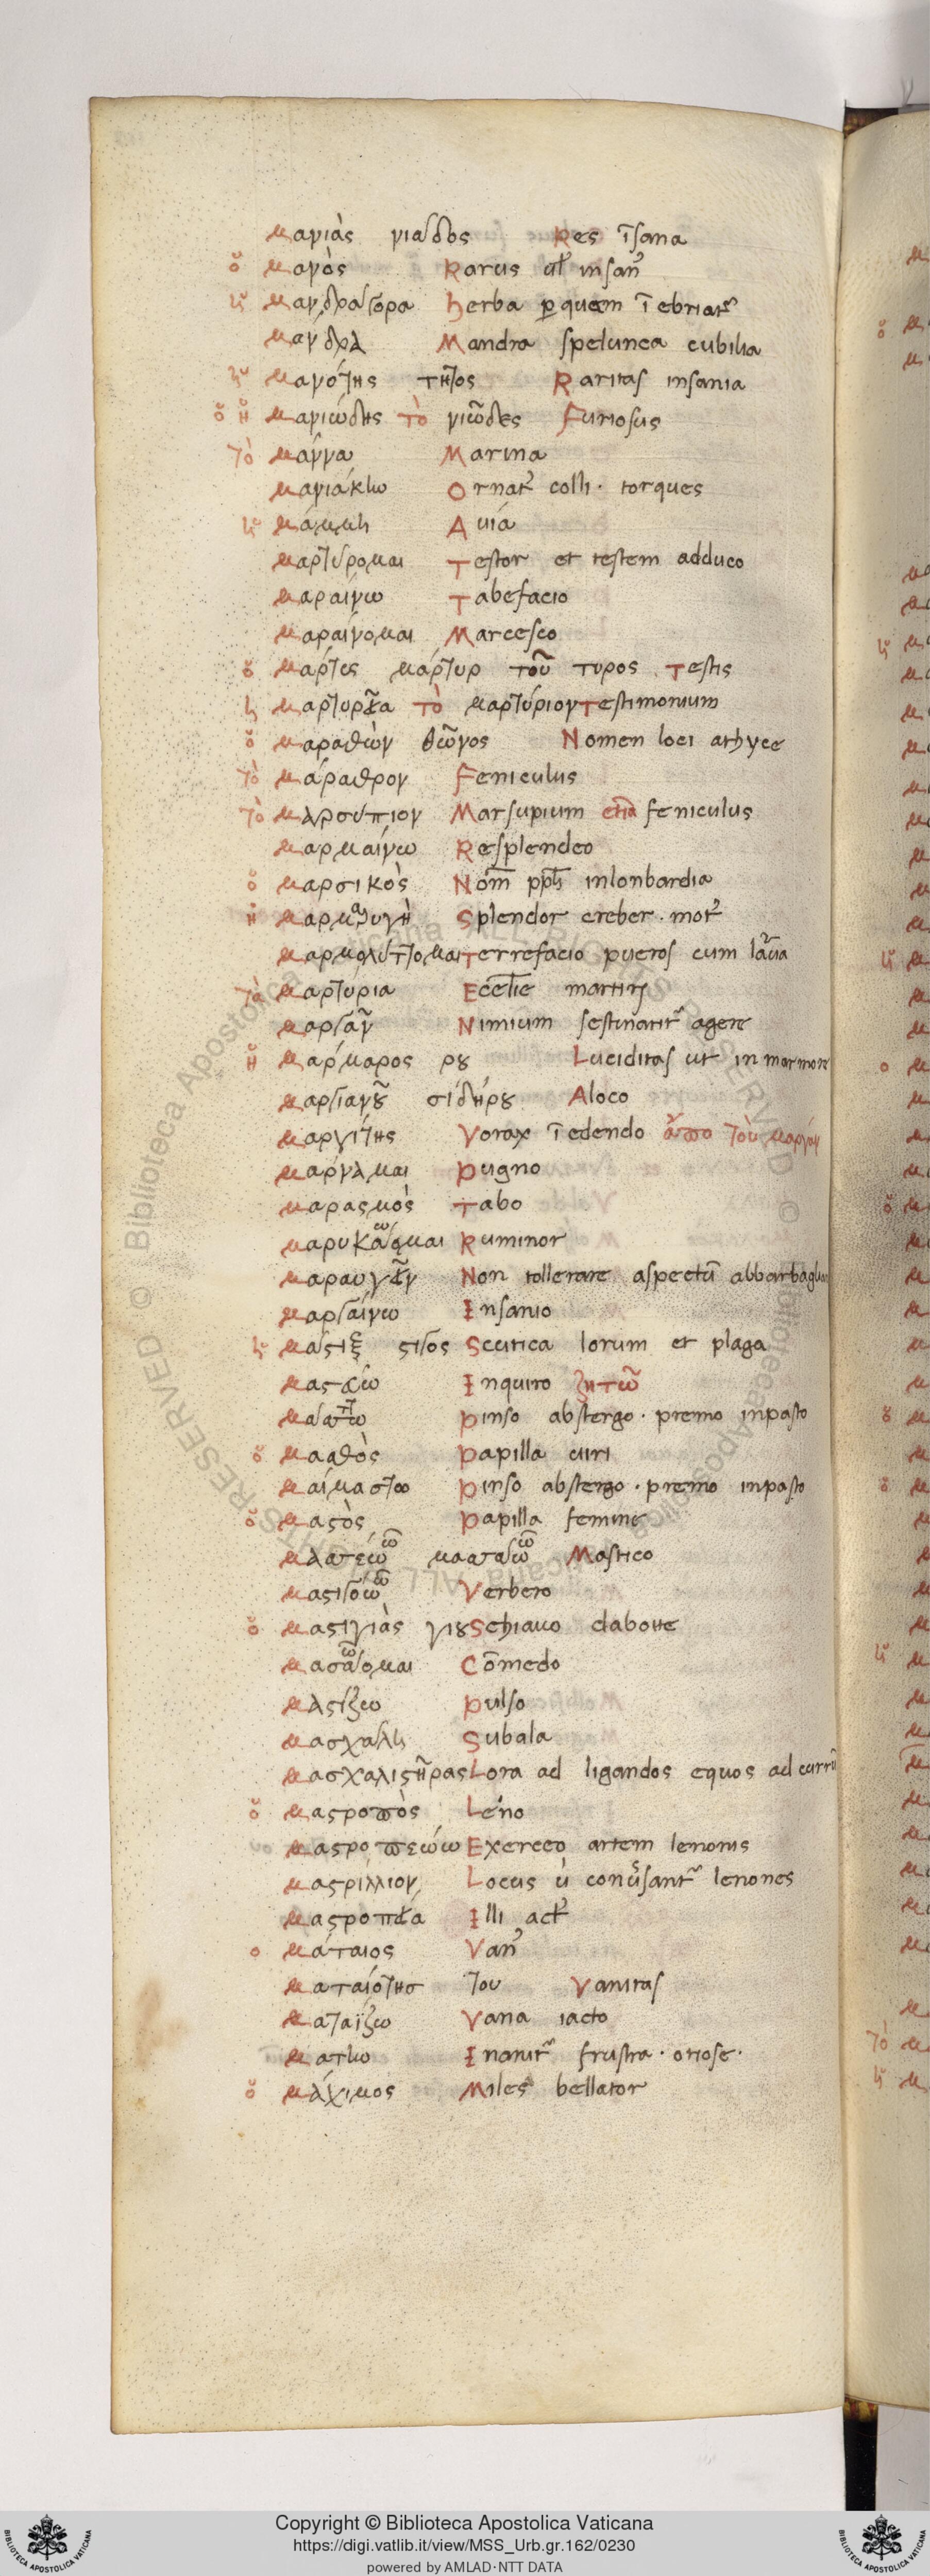 μανιὰς νιάδος Res īsana
ὁ μανὸς Rarus ul' insan'
ἡ μανδραγόρα herba p quam ī ebriat'
μάνδρα Mandra spelunca cubilia
ἡ μανότης τητος Raritas insania
ὁ ἡ μανιώδης τὸ νιῶδες Furiosus
τὸ μάννα Manna
μανιάκιω Ornat' colli · torques
ἡ μάμμη Auia
μαρτύρομαι Testor et testem adduco
μαραίνω Tabefacio
μαραίνομαι Marcesco
ὁ μάρτις μάρτυρ τοῦ τυρος Testis
ἡ μαρτυρεία τὸ μαρτύριον Testimonium
ὁ μαραθὼν θῶνος Nomen loci athyce
τὸ μάραθρον Feniculus
τὸ μαρσύπιον Marsupium etiā feniculus
μαρμαίνω Resplendeo
ὁ μαρσικὸς Nom̄ pph inlonbardia
ἡ μαρμαρυγὴ Splendor creber · mot'
μαρμολύττομαι Terrefacio pueros cum larua
τὰ μαρτύρια Eccl'ie martirȷ
μαργᾶν Nimium festinanter agere
ἡ μάρμαρος ρου Luciditas ut in marmore
μαργιανοῦ σιδήρου Aloco
μαργίτης Vorax ī edendo ἀπὸ τοῦ μαργᾶν
μάρναμαι Pugno
μαρασμὸς Tabo
μαρυκάομαι Ruminor
μαραυγεῖν Non tollerare aspectū abbarbagliare
μαργαίνω Insanio
ἡ μάστιξ στιγος Scutica lorum et plaga
μαστεύω Inquiro ζητῶ
μάσσω Pinso abstergo · premo inpasto
ὁ μασθὸς Papilla uiri
μαιμάσσω Pinso abstergo · premo inpasto
ὁ μαστὸς Papilla femine
ματτεύω μασσάω Mastico
μαστιγόω Verbero
ὁ μαστιγιὰς γιου Schiauo dabotte
μασάομαι Cōmedo
μαστίζω Pulso
μασχάλη Subala
μασχαλιστῆρας Lora ad ligandos equos ad currū
ὁ μαστροπὸς Leno
μαστροπεύω Exerceo artem lenonis
μαστρίλλιον Locus ù conuersant' lenones
μαστροπεία Illi act'
ὁ μάταιος Van'
ματαιότησ του Vanitas
ματαΐζω Vana iacto
μάτιω Inanit' frustra · otiose ·
ὁ μάχιμος Miles bellator
Copyright © Biblioteca Apostolica Vaticana
https://digi.vatlib.it/view/MSS_Urb.gr.162/0230
powered by AMLAD·NTT DATA